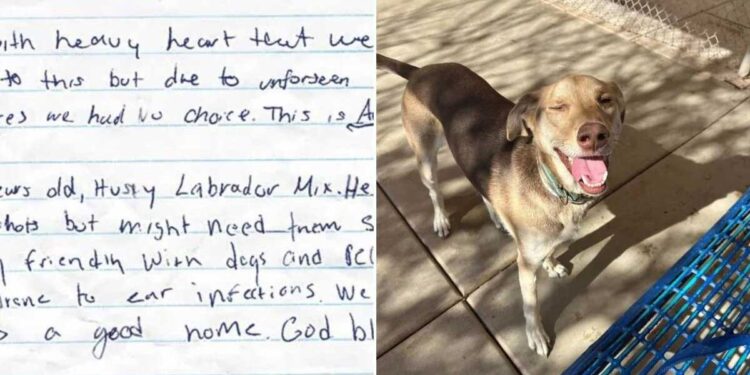 ith heavy heart that we
to this but due to unforseen
es we had no choice. This is A
ears old, Husky Labrador Mix. He
shots but might need them s
friendly with dogs and
to ear infections. We
a good home. God bl